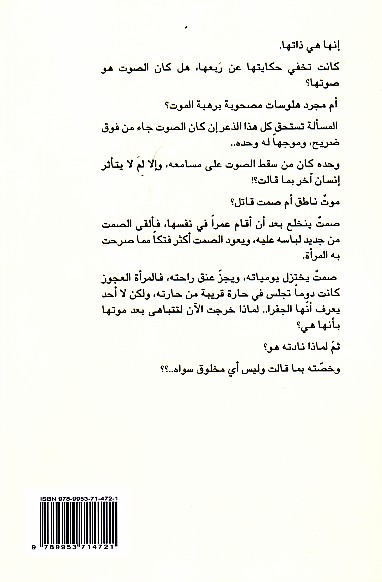 إنها هي ذاتها.
كانت تخفي حكايتها عن رَبعها، هل كان الصوت هو
صوتها؟
أم مجرد هلوسات مصحوبة برهبة الموت؟
المسألة تستحق كل هذا الذعر إن كان الصوت جاء من فوق
ضريح، وموجهاً له وحده..
وحده كان من سقط الصوت على مسامعه، وإلا لمَ لا يتأثر
إنسان آخر بما قالت؟!
موتٌ ناطق أم صمت قاتل؟
صمتٌ ينخلع بعد أن أقام عمراً في نفسها، فألقى الصمت
من جديد لباسه عليه، ويعود الصمت أكثر فتكاً مما صرحت
به المرأة.
صمتٌ يختزل يومياته، ويجزّ عنق راحته، فالمرأة العجوز
كانت دوماً تجلس في حارة قريبة من حارته، ولكن لا أحد
يعرف أنّها الجفرا.. لماذا خرجت الآن لتتباهى بعد موتها
بأنها هي؟
ثمّ لماذا نادته هو؟
وخصّته بما قالت وليس أي مخلوق سواه..؟؟
ISBN 978-9953-71-472-1
9 789953 714721